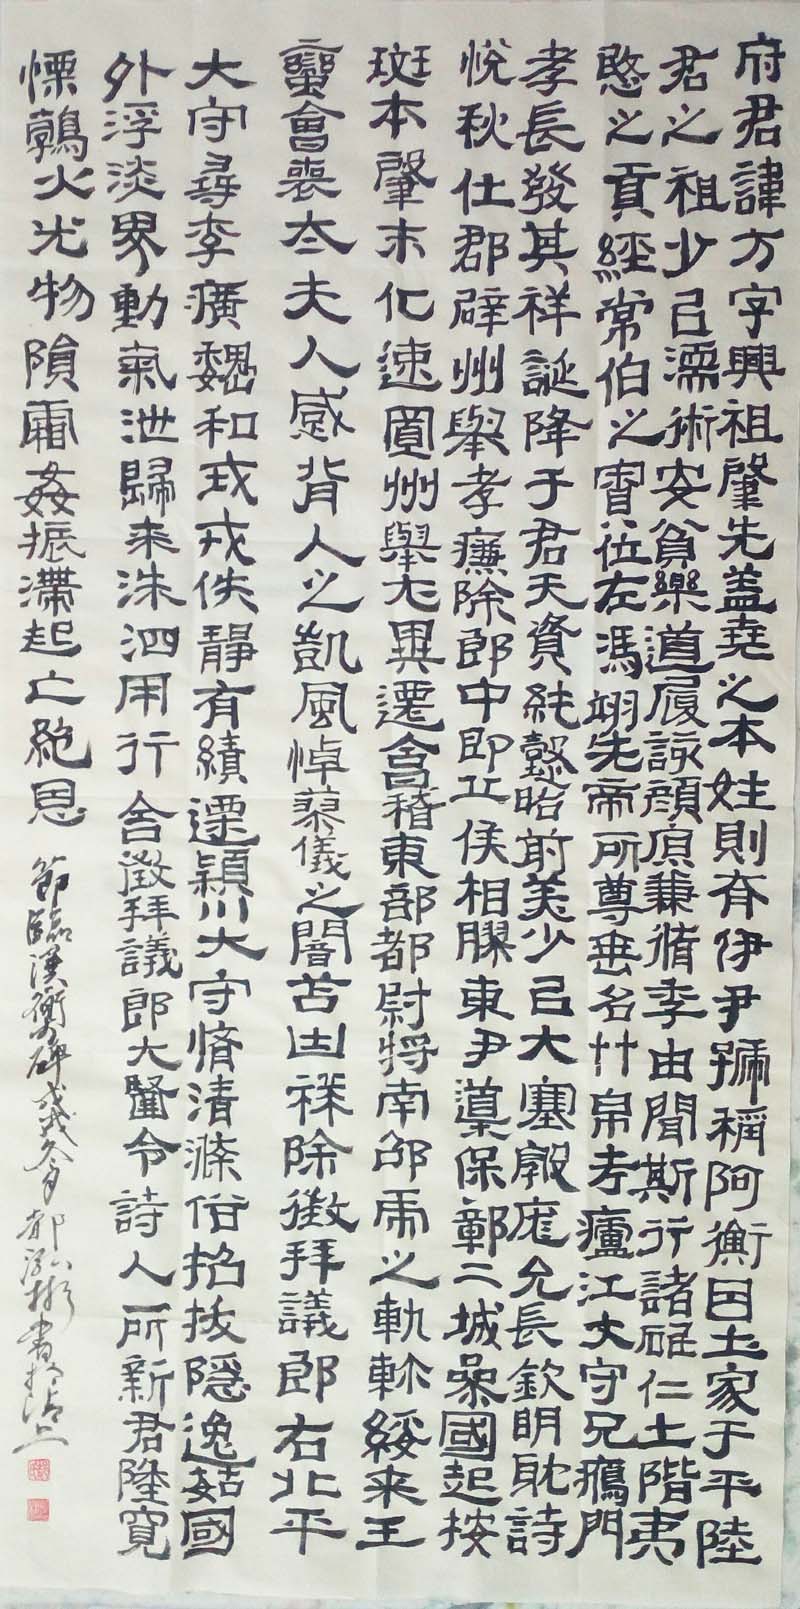 府君諱方字興祖肇先蓋堯之本姓則有伊尹號稱阿衡因土家于平陸
君之祖少㠯濡術安貧樂道履該顏原兼脩季由聞斯行諸砥仁土階夷
愍之貢經常伯之寮位左馮翊先帝所尊垂名竹帛考廬江大守兄鴈門
孝長發其祥誕降于君天資純懿昭前美少㠯大塞敦庬允長欽明耽詩
悅秋仕郡辟州舉孝廉除郎中即丘侯相膠東尹導保鄣二城參國起按
斑本肇末化速置州舉尤異遷會稽東部都尉將南邵虎之軌躰綏來王
蠻會喪太夫人感背人之凱風悼蓼儀之闇苫凷祥除徵拜議郎右北平
大守尋李廣魏和戎戎佚靜有績遷潁川大守脩清滌俗招拔隱逸如國
外浮淡界動氣泄歸來洙泗用行舍徵拜議郎大醫令詩人所新君隆寬
慄鶉火光物隕霜姦振滯起亡絕思
節臨漢衡碑戊戌冬月郝